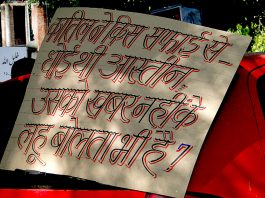 क़ातिल ने किस सफ़ाई से-
धोई थी आस्तीन,
उसको ख़बर नहीं के
लहू बोलता भी है 7